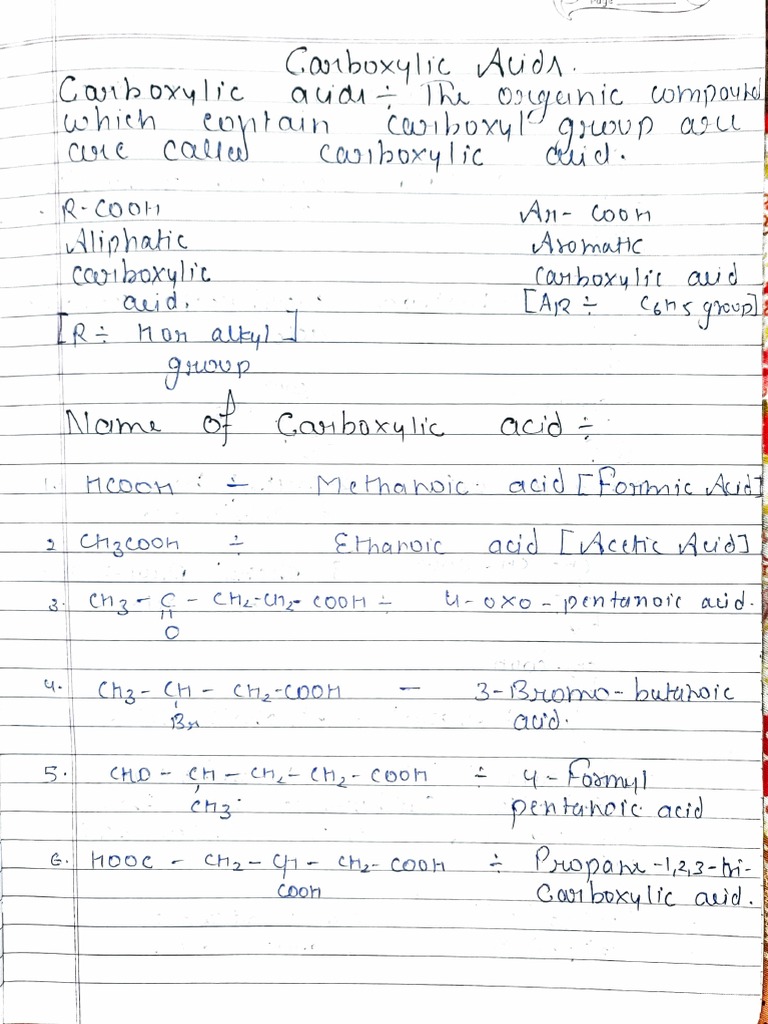 Carboxylic Acids.
Carboxylic acids ÷ The organic compound
which contain carboxyl group are
are called carboxylic acid.
R-COOH Ar- COOH
Aliphatic Aromatic
carboxylic Carboxylic acid
acid. [AR ÷ C6H5 group]
[R ÷ H or alkyl]
group
Name of Carboxylic acid ÷
1. HCOOH ÷ Methanoic acid [Formic Acid]
2 CH3COOH ÷ Ethanoic acid [Acetic Acid]
3. CH3 - C - CH2-CH2- COOH ÷ 4-oxo-pentanoic acid.
O
4. CH3 - CH - CH2-COOH - 3-Bromo-butanoic
Br acid.
5. CHO - CH - CH2 - CH2 - COOH ÷ 4-Formyl
CH3 pentanoic acid
6. HOOC - CH2 - CH - CH2- COOH ÷ Propane-1,2,3-tri-
COOH Carboxylic acid.